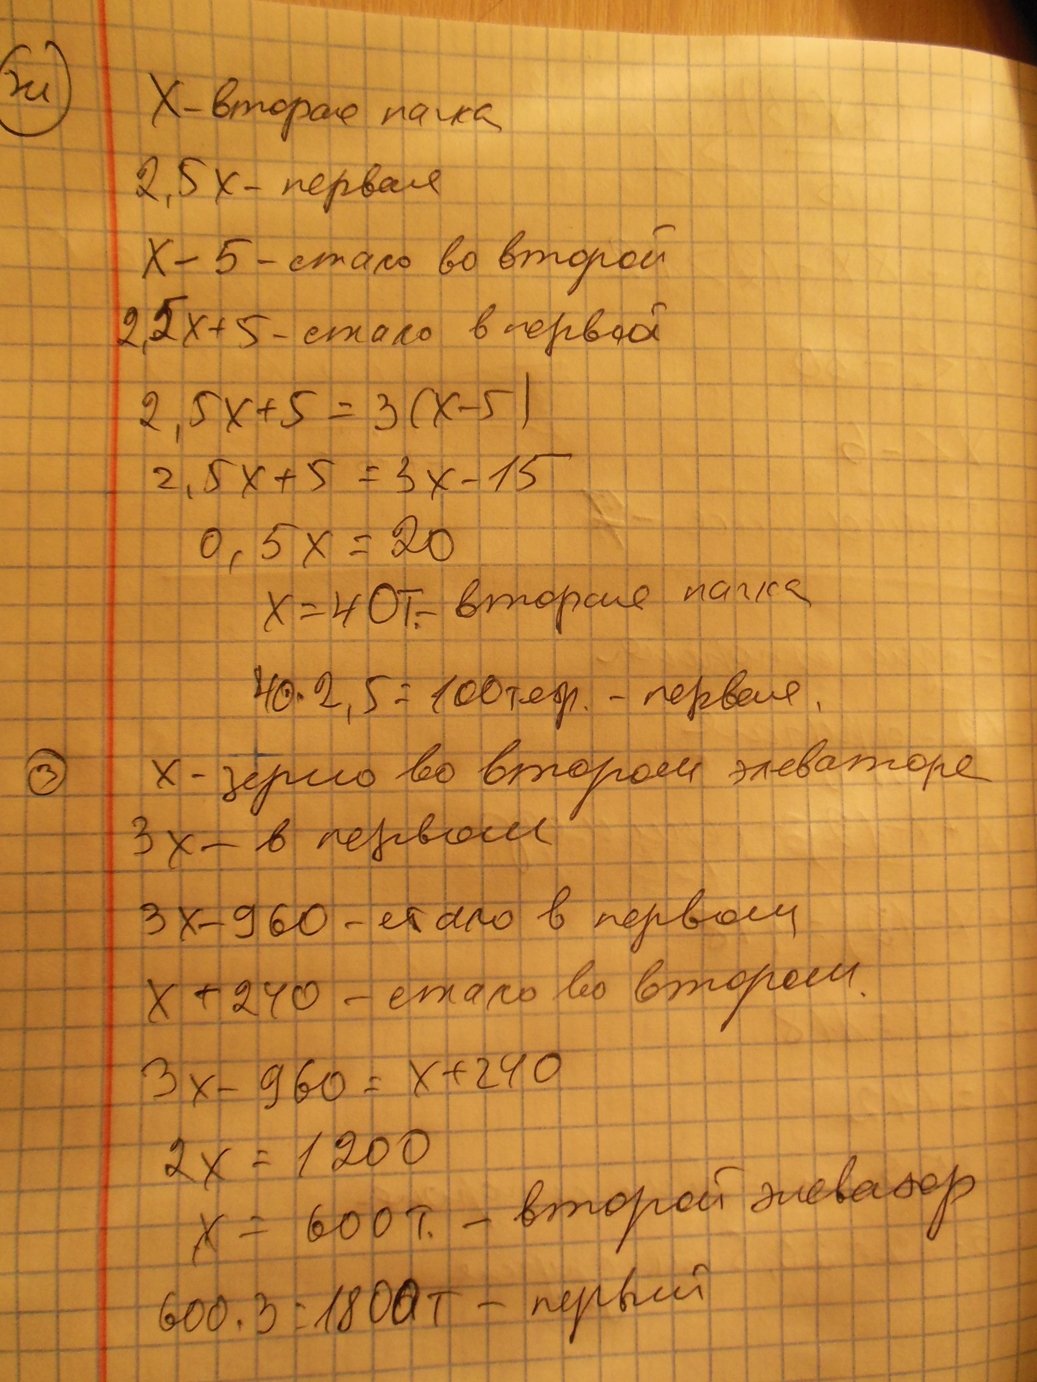 ж
X - вторая пачка
2,5x - первая
X - 5 - стало во второй
2,5x+5 - стало в первой
2,5x+5 = 3(x-5)
2,5x+5 = 3x-15
0,5x = 20
x = 40т. - вторая пачка
40·2,5 = 100тетр. - первая.
з
x - зерно во втором элеваторе
3x - в первом
3x - 960 - стало в первом
x + 240 - стало во втором.
3x - 960 = x+240
2x = 1200
x = 600т. - второй элеватор
600·3 = 1800т - первый